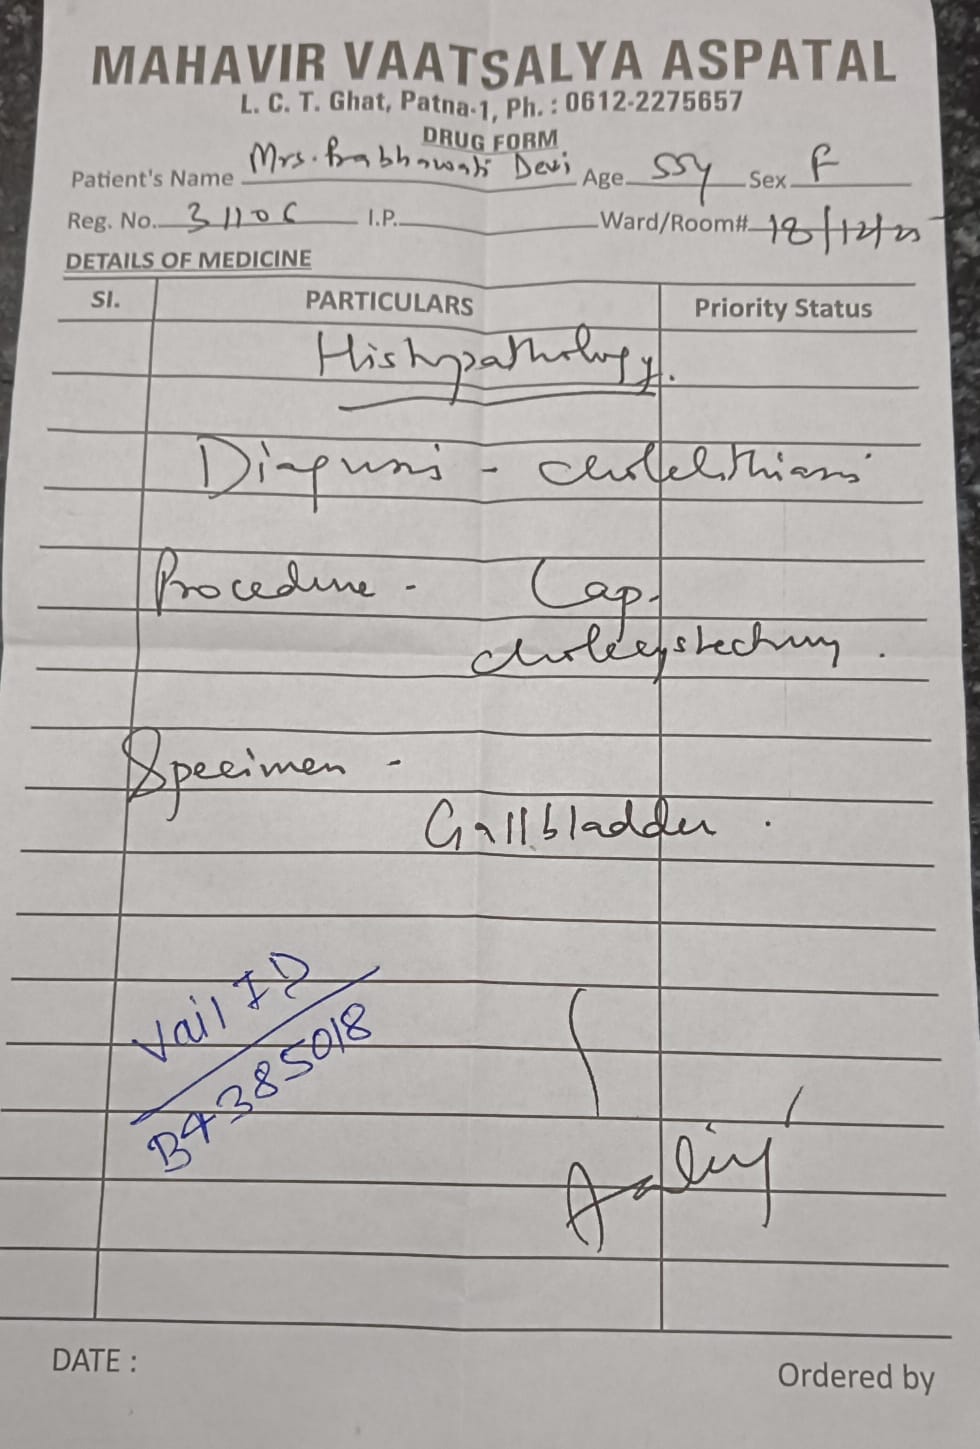 MAHAVIR VAATSALYA ASPATAL
L. C. T. Ghat, Patna-1, Ph. : 0612-2275657
DRUG FORM
Patient's Name Mrs. Prabhawati Devi Age 55y Sex F
Reg. No. 31106 I.P. Ward/Room# 18/12/25
DETAILS OF MEDICINE
Sl. PARTICULARS Priority Status
Histopathology.
Diagnosis - cholelithiasis
Procedure - Lap.
cholecystectomy.
Specimen -
Gallbladder.
Vail ID
B4385018
DATE :
Ordered by